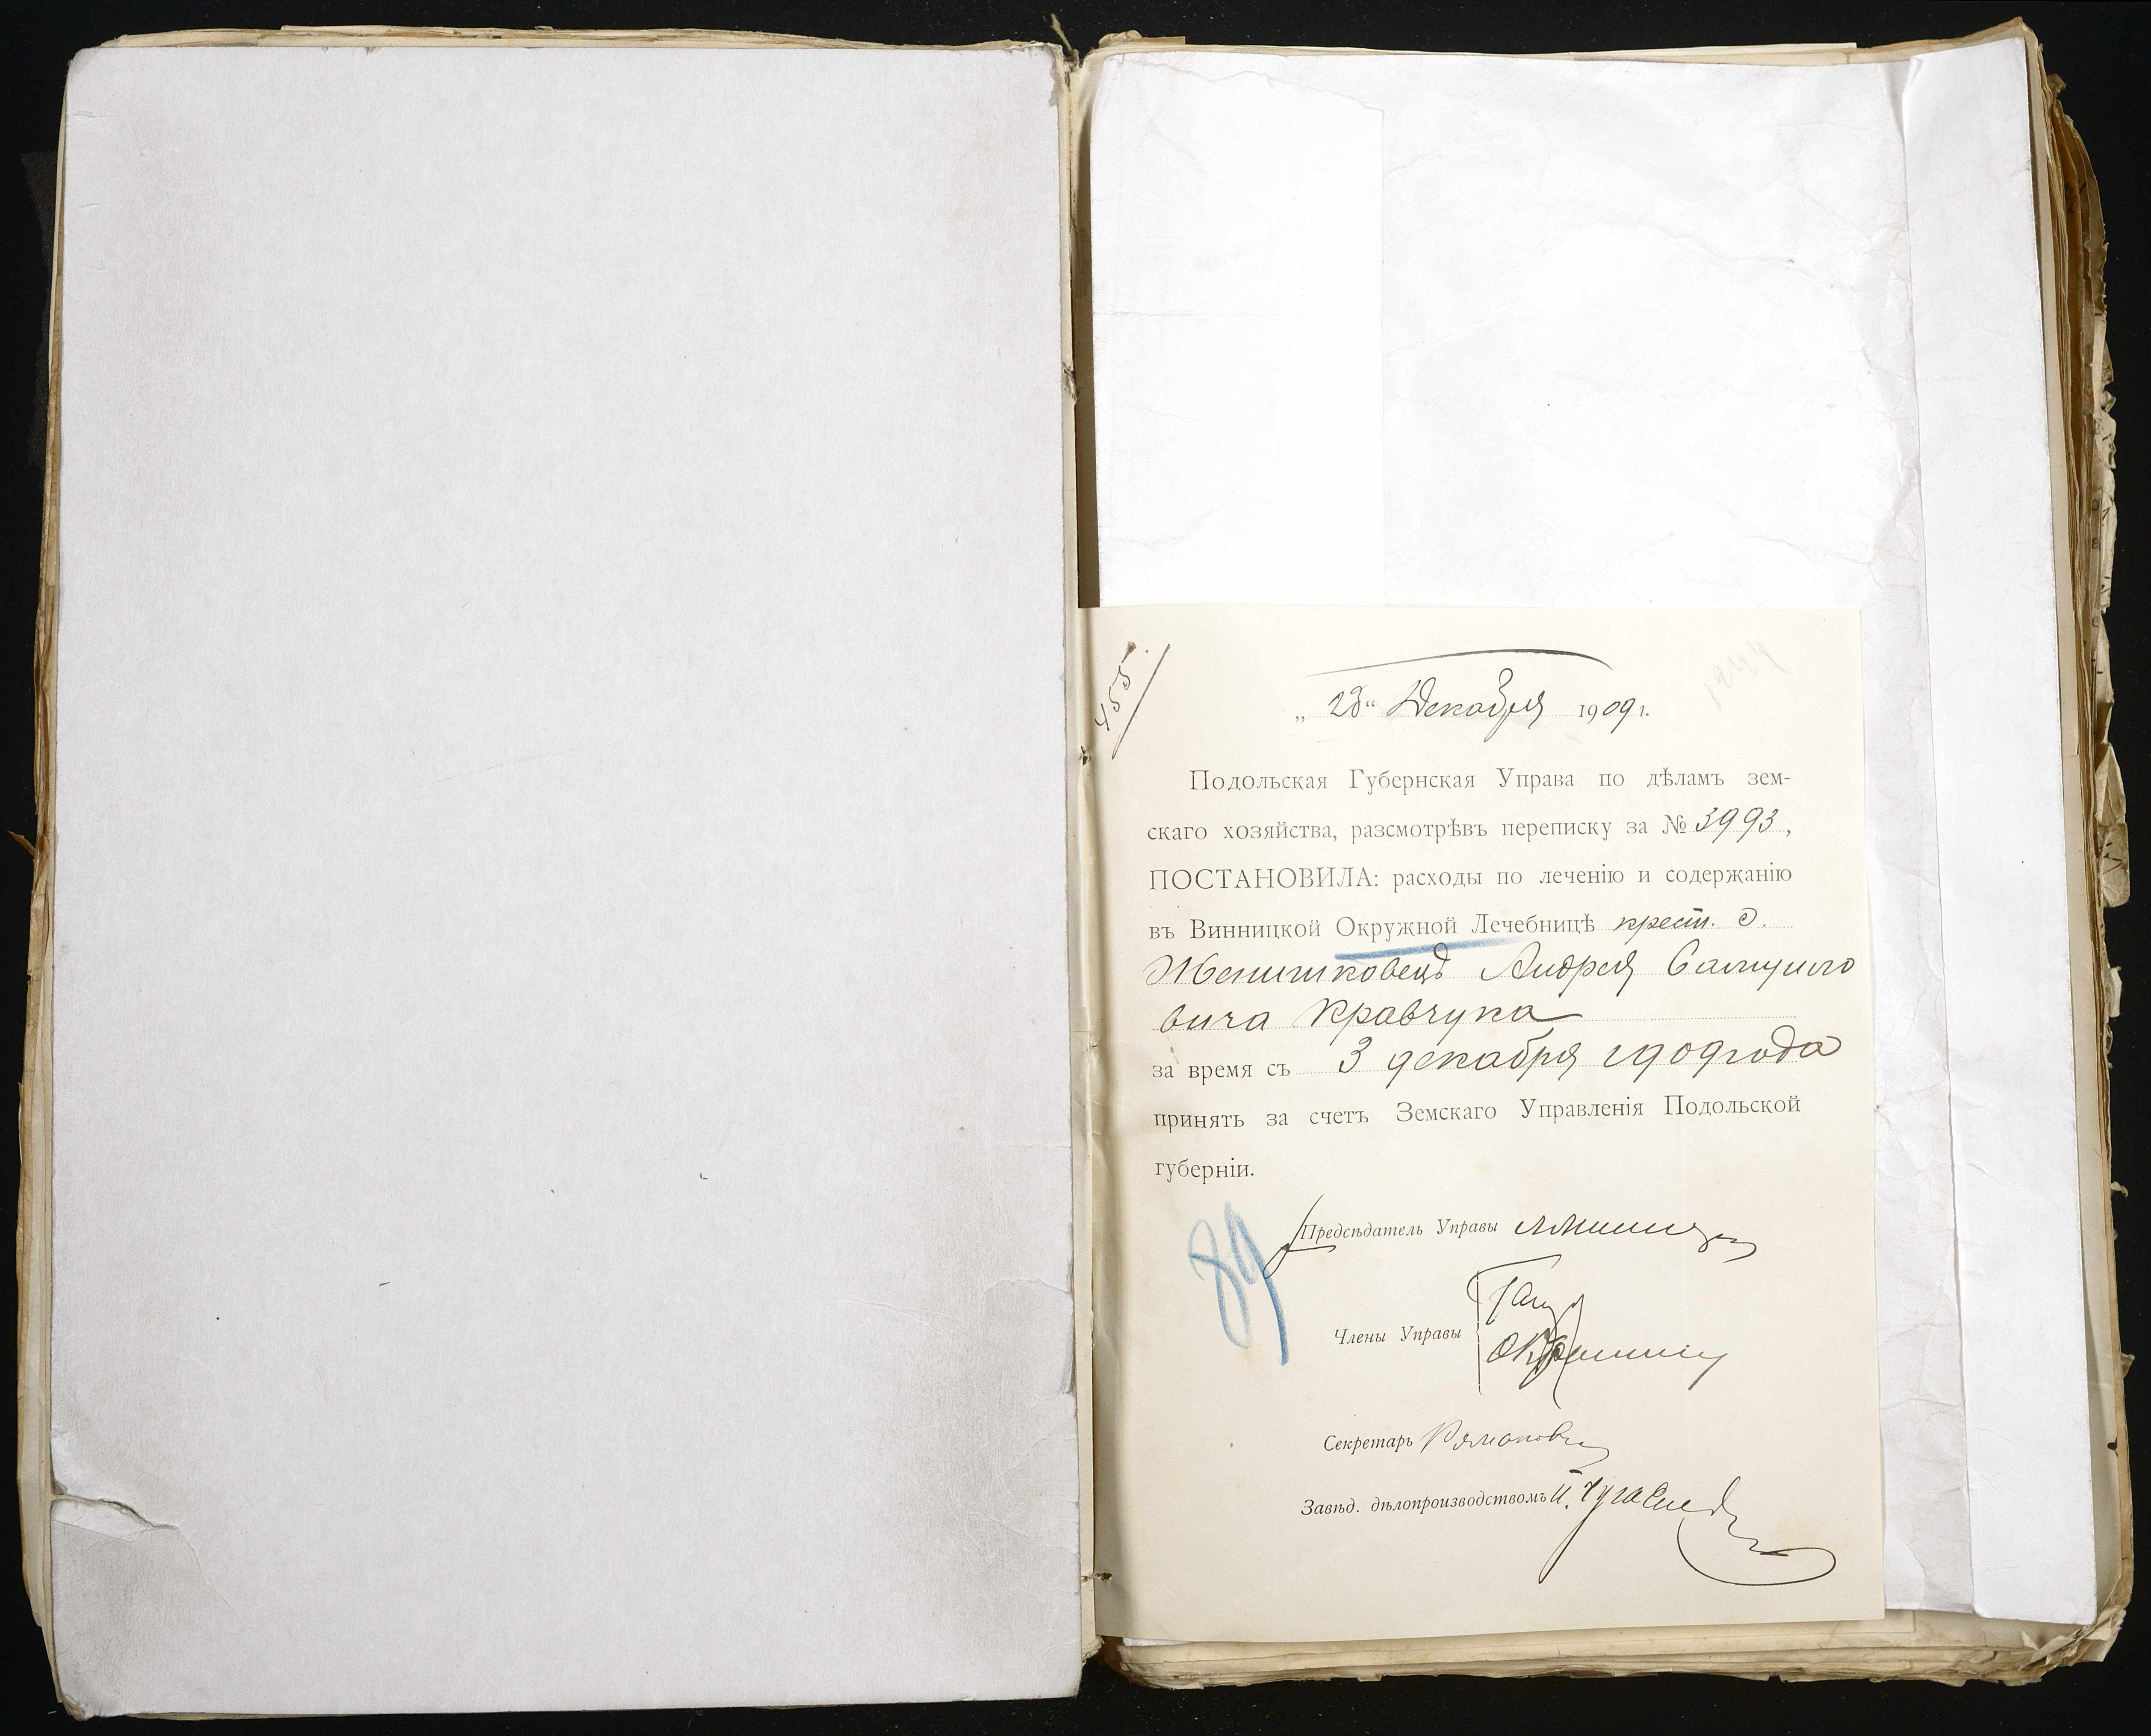 455.
„ 23 “ Декабря 1909 г.
Подольская Губернская Управа по дѣламъ зем-
скаго хозяйства, разсмотрѣвъ переписку за № 3993,
ПОСТАНОВИЛА: расходы по леченію и содержанію
въ Винницкой Окружной Лечебницѣ крест. д.
Женишковецъ Андрея Самуило
вича Кравчука
за время съ 3 декабря 1909 года
принять за счетъ Земскаго Управленія Подольской
губерніи.
89
Предсѣдатель Управы
Члены Управы
Секретарь
Завѣд. дѣлопроизводствомъ